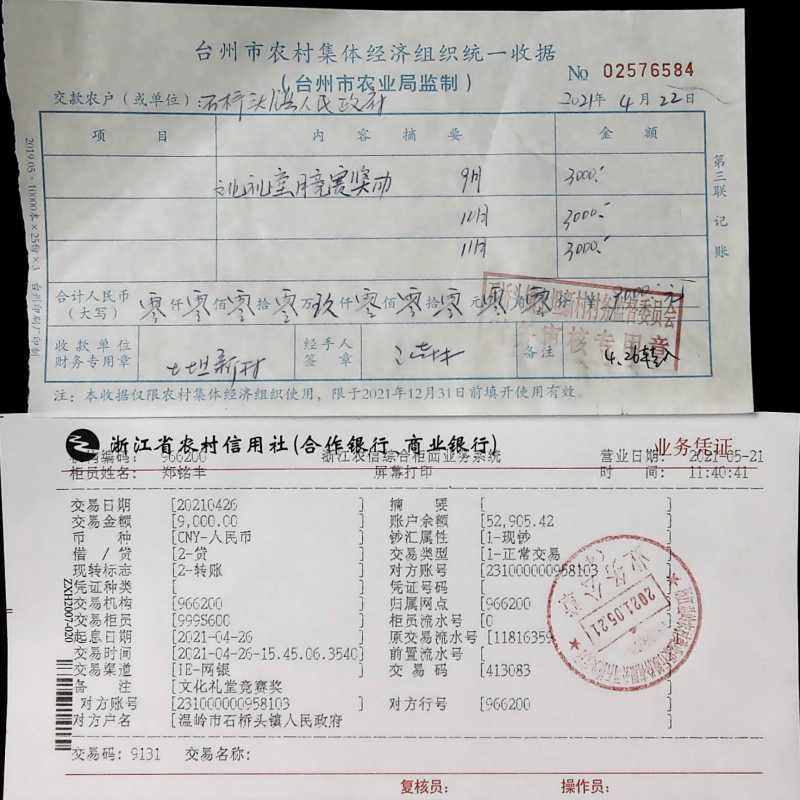 台州市农村集体经济组织统一收据
(台州市农业局监制)
No 02576584
交款农户(或单位) 石桥头镇人民政府 2021年 4月 22日
项目 内容摘要 金额
礼堂 竞赛奖励 9月 3000.-
10月 3000.-
11月 3000.-
合计人民币(大写) 零仟零佰零拾零万玖仟零佰零拾零元零角零分 9000-元
收款单位财务专用章 土坦新村 经手人签章 备注 4.26转入
村经济监督委员会
审核专用章
注:本收据仅限农村集体经济组织使用,限于2021年12月31日前填开使用有效。
第三联 记账
2019.05·10000本×25份×3 台州印刷厂印制
浙江省农村信用社(合作银行 商业银行) 业务凭证
机构编码: 966200 浙江农信综合柜面业务系统 营业日期: 2021-05-21
柜员姓名: 郑铭丰 屏幕打印 时 间: 11:40:41
交易日期 [20210426 ] 摘 要 [ ]
交易金额 [9,000.00 ] 账户余额 [52,905.42 ]
币 种 [CNY-人民币 ] 钞汇属性 [1-现钞 ]
借 / 贷 [2-贷 ] 交易类型 [1-正常交易 ]
现转标志 [2-转账 ] 对方账号 [231000000958103 ]
凭证种类 [ ] 凭证号码 [ ]
交易机构 [966200 ] 归属网点 [966200 ]
交易柜员 [999S600 ] 柜员流水号 [0 ]
起息日期 [2021-04-26 ] 原交易流水号 [11816359
交易时间 [2021-04-26-15.45.06.3540] 前置流水号 [ ]
交易渠道 [IE-网银 ] 交 易 码 [413083 ]
备 注 [文化礼堂竞赛奖 ]
对方账号 [231000000958103 ] 对方行号 [966200 ]
对方户名 [温岭市石桥头镇人民政府 ]
交易码: 9131 交易名称:
复核员: 操作员:
业务公章
2021.05.21
ZXH2007-020